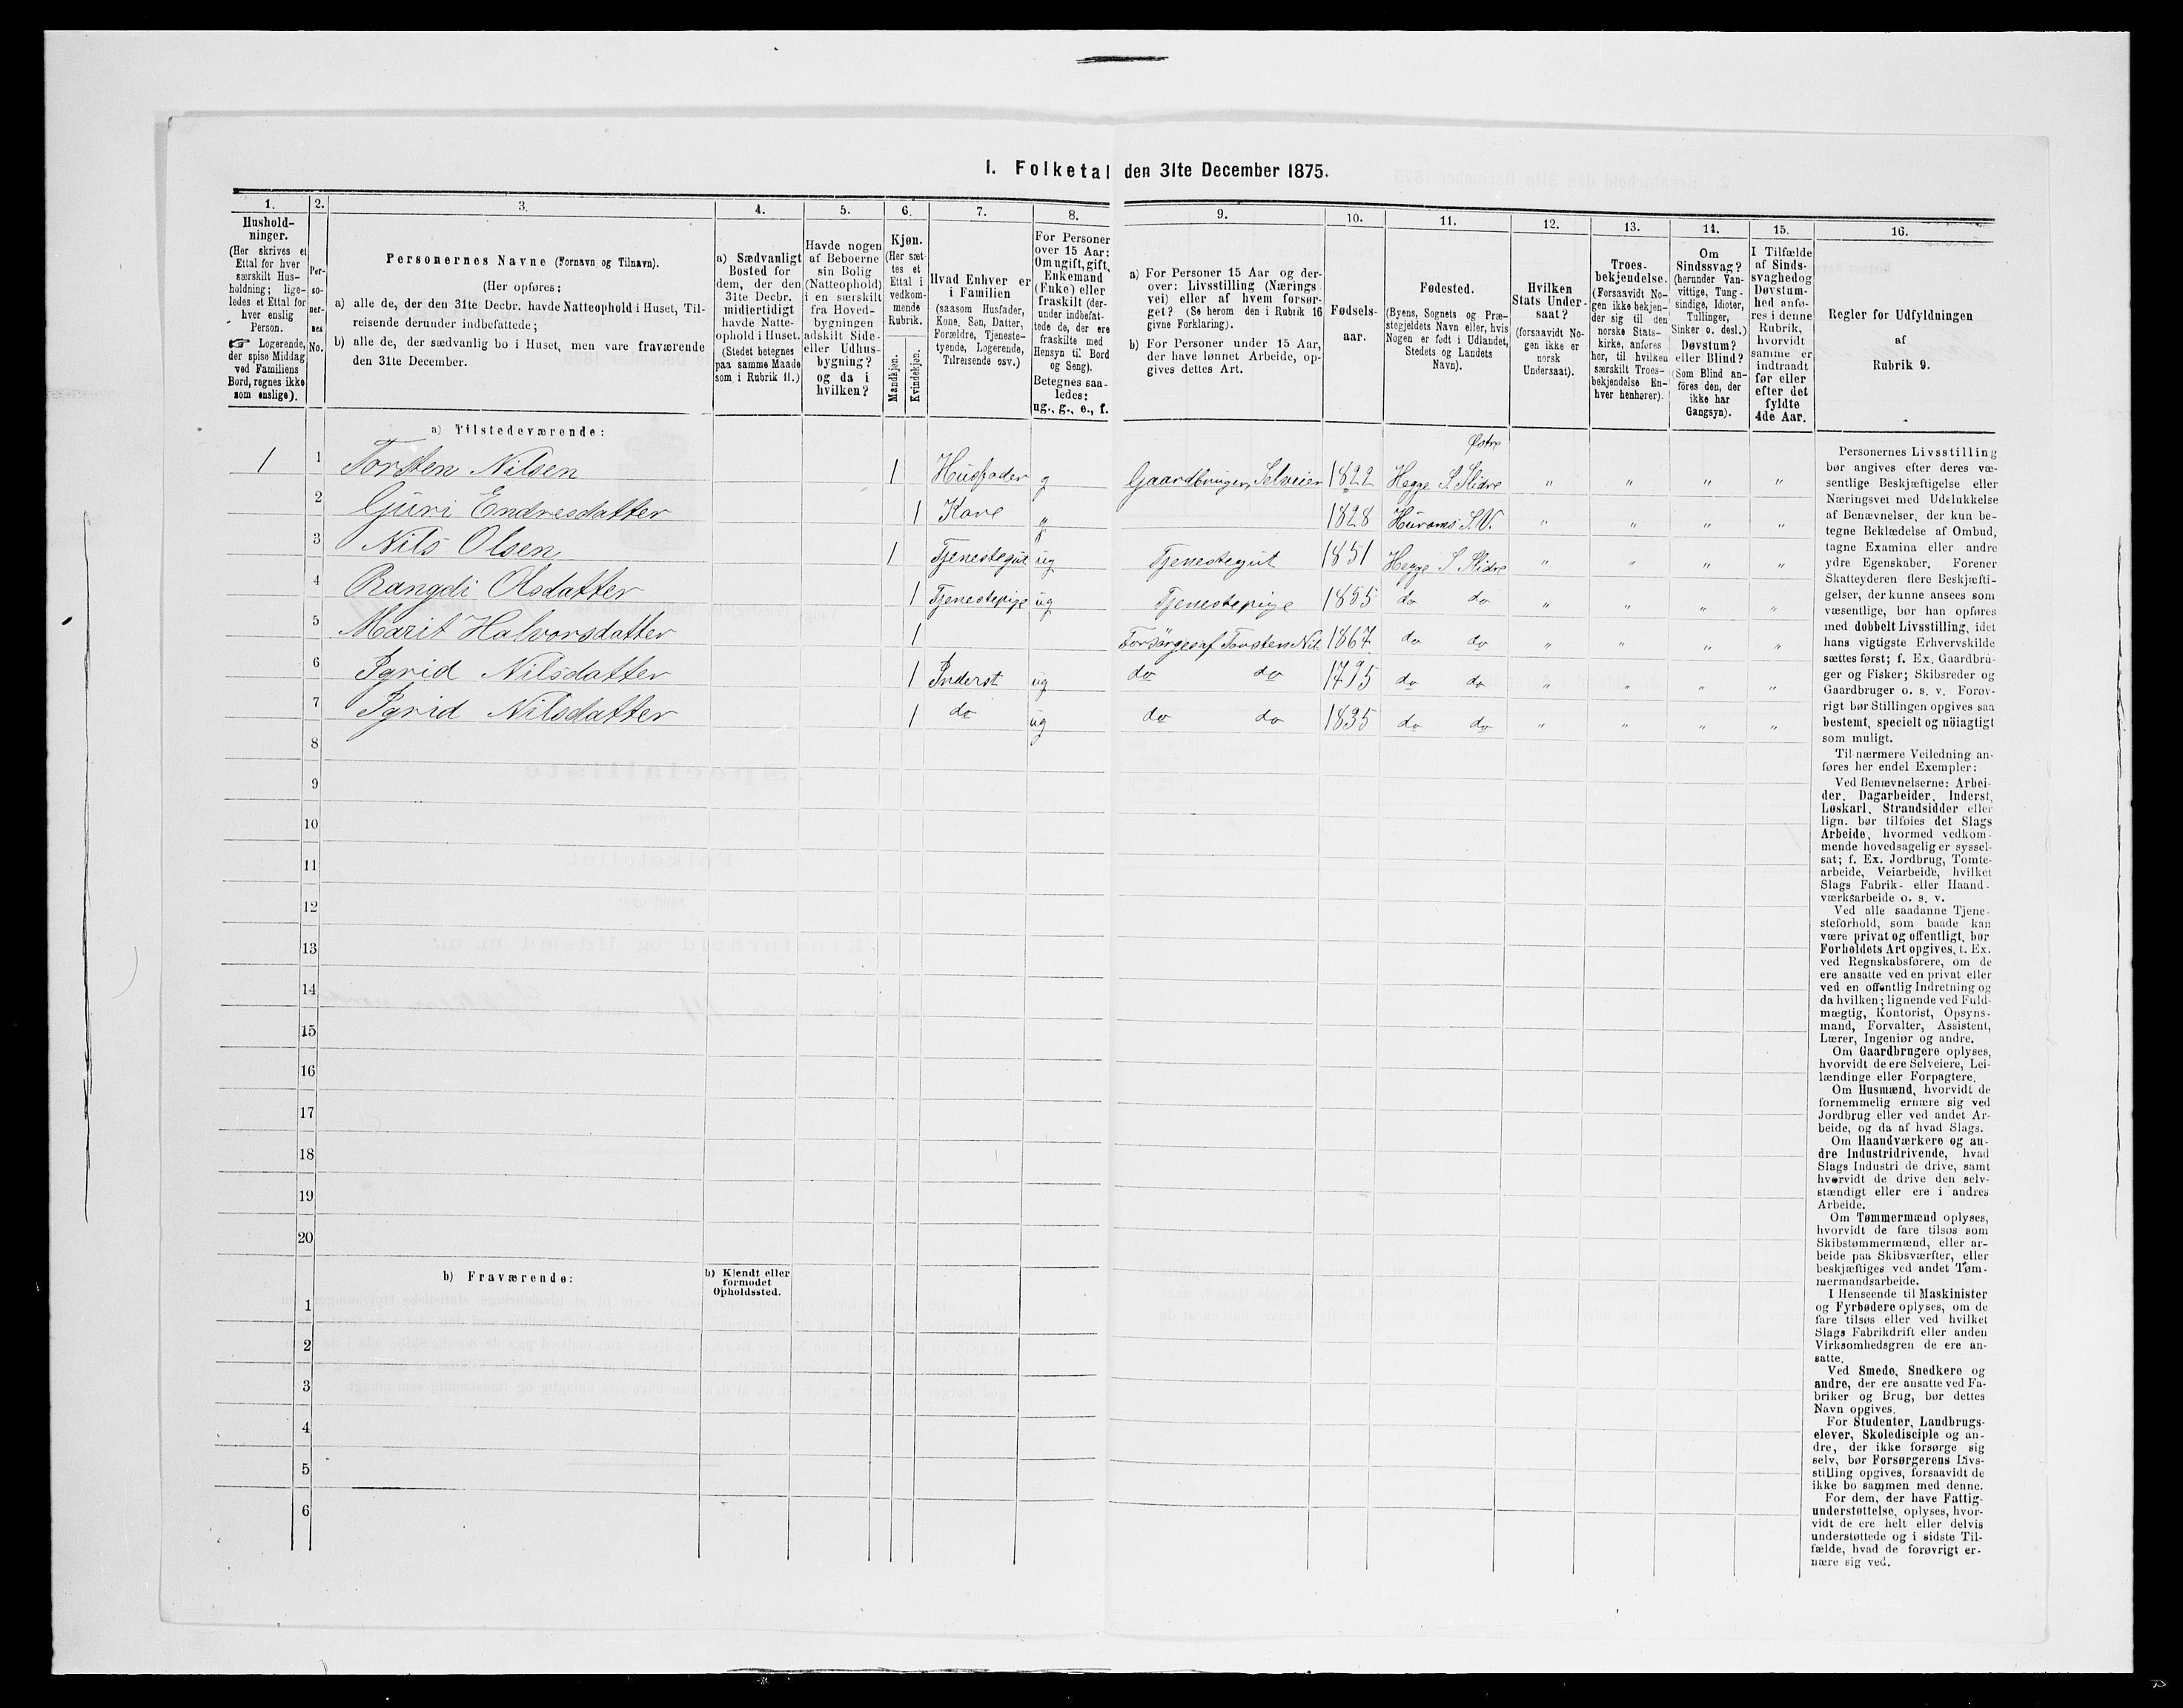 I. Folketal den 31te December 1875.
1. 2. 3. 4. 5. 6. 7. 8. 9. 10. 11. 12. 13. 14. 15. 16.
Hushold-
ninger.
(Her skrives et
Ettal for hver
særskilt Hus-
holdning; lige-
ledes et Ettal for
hver enslig
Person.
☞ Logerende,
der spise Middag
ved Familiens
Bord, regnes ikke
som enslige).
Per-
so-
ner-
nes
No.
Personernes Navne (Fornavn og Tilnavn).
(Her opføres:
a) alle de, der den 31te Decbr. havde Natteophold i Huset, Til-
reisende derunder indbefattede;
b) alle de, der sædvanlig bo i Huset, men vare fraværende
den 31te December.
a) Sædvanligt
Bosted for
dem, der den
31te Decbr.
midlertidigt
havde Natte-
ophold i Huset.
(Stedet betegnes
paa samme Maade
som i Rubrik 11.)
Havde nogen
af Beboerne
sin Bolig
(Natteophold)
i en særskilt
fra Hoved-
bygningen
adskilt Side-
eller Udhus-
bygning?
og da i
hvilken?
Kjøn.
(Her sæt-
tes et
Ettal i
vedkom-
mende
Rubrik.
Mandkjøn.
Kvindekjøn.
Hvad Enhver er
i Familien
(saasom Husfader,
Kone, Søn, Datter,
Forældre, Tjeneste-
tyende, Logerende,
Tilreisende osv.)
For Personer
over 15 Aar:
Om ugift, gift,
Enkemand
(Enke) eller
fraskilt (der-
under indbefat-
tede de, der ere
fraskilte med
Hensyn til Bord
og Seng).
Betegnes saa-
ledes:
ug., g., e., f.
a) For Personer 15 Aar og der-
over: Livsstilling (Nærings
vei) eller af hvem forsør-
get? (Se herom den i Rubrik 16
givne Forklaring).
b) For Personer under 15 Aar,
der have lønnet Arbeide, op-
gives dettes Art.
Fødsels-
aar.
Fødested.
(Byens, Sognets og Præ-
stegjeldets Navn eller, hvis
Nogen er født i Udlandet,
Stedets og Landets
Navn).
Hvilken
Stats Under-
saat?
(forsaavidt No-
gen ikke er
norsk
Undersaat).
Troes-
bekjendelse.
(Forsaavidt No-
gen ikke bekjen-
der sig til den
norske Stats-
kirke, anføres
her, til hvilken
særskilt Troes-
bekjendelse En-
hver henhører).
Om
Sindssvag?
(herunder Van-
vittige, Tung-
sindige, Idioter,
Tullinger,
Sinker o. desl.)
Døvstum?
eller Blind?
(Som Blind an-
føres den, der
ikke har
Gangsyn).
I Tilfælde
af Sinds-
svaghedog
Døvstum-
hed anfø-
res i denne
Rubrik,
hvorvidt
samme er
indtraadt
før eller
efter det
fyldte
4de Aar.
Regler for Udfyldningen
af
Rubrik 9.
a) Tilstedeværende:
Østre
1 1 Torsten Nilsen 1 Husfader g Gaardbruger, Selveier 1822 Hegge S. Slidre " " " "
2 Guri Endresdatter 1 Kone " 1828 Hurams S.V. " " " "
3 Nils Olsen 1 Tjenestegut ug Tjenestegut 1851 Hegge S Slidre " " " "
4 Rangdi Olsdatter 1 Tjenestepige ug Tjenestepige 1855 do do " " " "
5 Marit Halvorsdatter 1 Forsörges af Torsten Nil. 1867 do do " " " "
6 Igrid Nilsdatter 1 Inderst ug do do 1795 do do " " " "
7 Igrid Nilsdatter 1 do ug do do 1835 do do " " " "
8
9
10
11
12
13
14
15
16
17
18
19
20
b) Fraværende:
b) Kjendt eller
formodet
Opholdssted.
1
2
3
4
5
6
Personernes Livsstilling
bør angives efter deres væ-
sentlige Beskjæftigelse eller
Næringsvei med Udelukkelse
af Benævnelser, der kun be-
tegne Beklædelse af Ombud,
tagne Examina eller andre
ydre Egenskaber. Forener
Skatteyderen flere Beskjæfti-
gelser, der kunne ansees som
væsentlige, bør han opføres
med dobbelt Livsstilling, idet
hans vigtigste Erhvervskilde
sættes først; f. Ex. Gaardbru-
ger og Fisker; Skibsreder og
Gaardbruger o. s. v. Forøv-
rigt bør Stillingen opgives saa
bestemt, specielt og nöiagtigt
som muligt.
Til nærmere Veiledning an-
føres her endel Exempler:
Ved Benævnelserne: Arbei-
der, Dagarbeider, Inderst,
Løskarl, Strandsidder eller
lign. bør tilføies det Slags
Arbeide, hvormed vedkom-
mende hovedsagelig er syssel-
sat; f. Ex. Jordbrug, Tomte-
arbeide, Veiarbeide, hvilket
Slags Fabrik- eller Haand-
værksarbeide o. s. v.
Ved alle saadanne Tjene-
steforhold, som baade kan
være privat og offentligt, bør
Forholdets Art opgives, t. Ex.
ved Regnskabsførere, om de
ere ansatte ved en privat eller
ved en offentlig Indretning og
da hvilken; lignende ved Fuld-
mægtig, Kontorist, Opsyns-
mand, Forvalter, Assistent,
Lærer, Ingeniør og andre.
Om Gaardbrugere oplyses,
hvorvidt de ere Selveiere, Lei-
lændinge eller Forpagtere.
Om Husmænd, hvorvidt de
fornemmelig ernære sig ved
Jordbrug eller ved andet Ar-
beide, og da af hvad Slags.
Om Haandværkere og an-
dre Industridrivende, hvad
Slags Industri de drive, samt
hvorvidt de drive den selv-
stændigt eller ere i andres
Arbeide.
Om Tømmermænd oplyses,
hvorvidt de fare tilsøs som
Skibstømmermænd, eller ar-
beide paa Skibsværfter, eller
beskjæftiges ved andet Tøm-
mermandsarbeide.
I Henseende til Maskinister
og Fyrbødere oplyses, om de
fare tilsøs eller ved hvilket
Slags Fabrikdrift eller anden
Virksomhedsgren de ere an-
satte.
Ved Smede, Snedkere og
andre, der ere ansatte ved Fa-
briker og Brug, bør dettes
Navn opgives.
For Studenter, Landbrugs-
elever, Skoledisciple og an-
dre, der ikke forsørge sig
selv, bør Forsørgerens Livs-
stilling opgives, forsaavidt de
ikke bo sammen med denne.
For dem, der have Fattig-
understøttelse, oplyses, hvor-
vidt de ere helt eller delvis
understøttede og i sidste Til-
fælde, hvad de forøvrigt er-
nære sig ved.